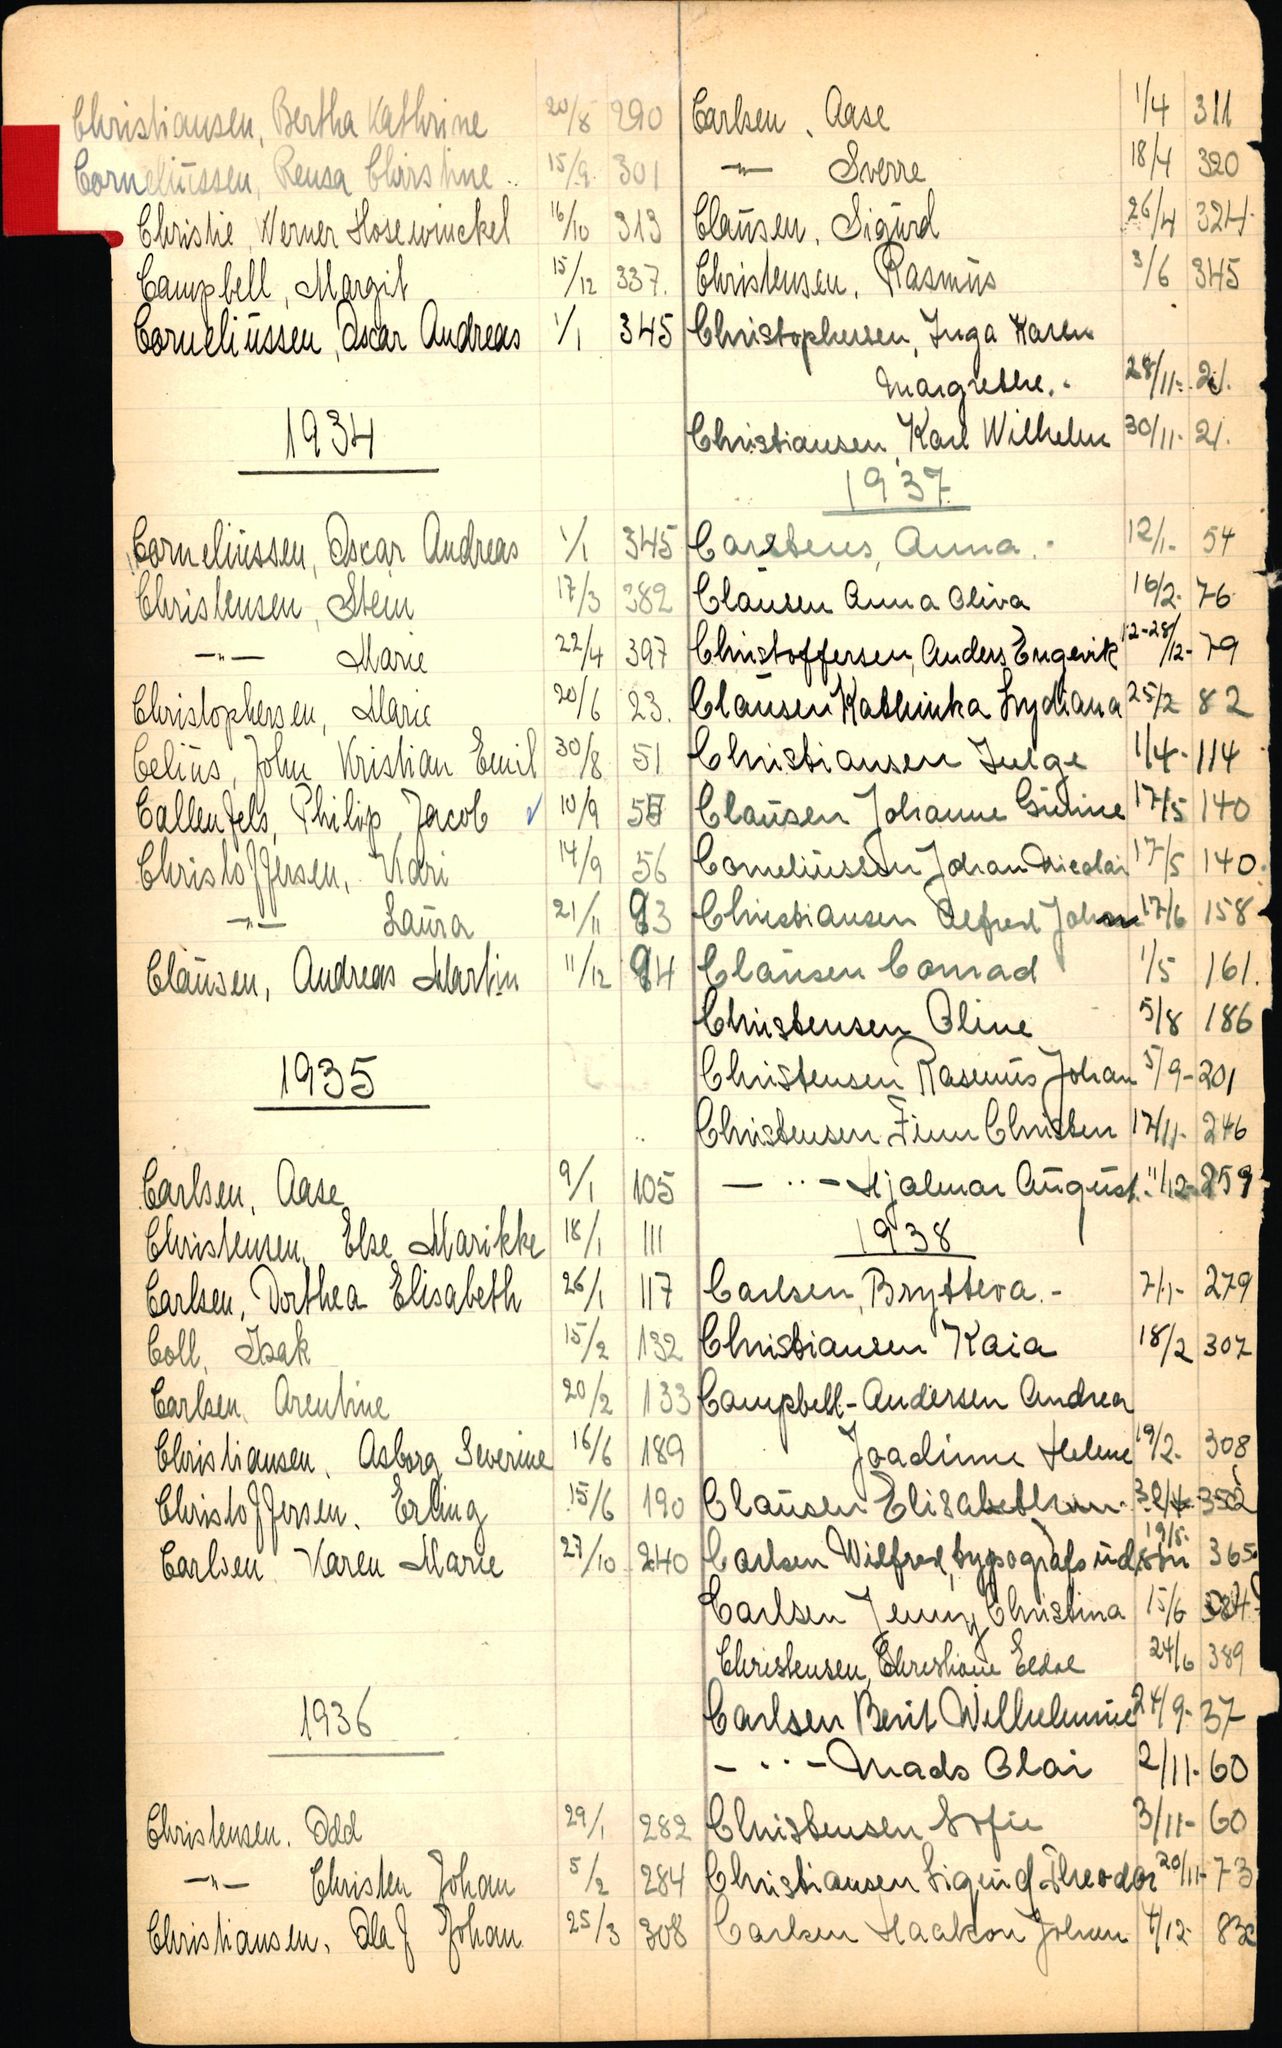 Christiansen, Bertha Kathrine 20/8 290
Corneliussen, Rensa Christine 15/9 301
Christie, Werner Hosewinckel 16/10 313
Campbell, Margit 15/12 337.
Corneliussen, Oscar Andreas 1/1 345
1934
Corneliussen, Oscar Andreas 1/1 345
Christensen, Stein 17/3 382
-"- Marie 22/4 397
Christophersen, Marie 20/6 23.
Celius, John Kristian Emil 30/8 51
Callenfels, Philip Jacob ✓ 10/9
Christoffersen, Kari 14/9 56
-"- Laura 21/11 93
Clausen, Andreas Martin 11/12 94
1935
Carlsen, Aase 9/1 105
Christensen, Else Marikke 18/1 111
Carlsen, Dorthea Elisabeth 26/1 117
Coll, Isak 15/2 132
Carlsen, Arentine 20/2 133
Christiansen, Asborg Severine 16/6 189
Christoffersen, Erling 15/6 190
Carlsen Karen Marie 27/10 240
1936
Christensen, Odd 29/1 282
-"- Christen Johan 5/2 284
Christiansen, Olaf Johan 25/3 308
Carlsen, Aase 1/4 311
-"- Sverre 18/4 320
Clausen, Sigurd 26/4 324.
Christensen, Rasmus 3/6 345
Christophersen, Inga Karen
Margrethe. 28/11. 21.
Christiansen, Karl Wilhelm 30/11. 21.
1937
Carstens, Anna. 12/1. 54
Clausen Anna Oliva 16/2. 76
Christoffersen, Anders Engevik 79
Clausen Kathinka Lydiana 25/2 82
Christiansen Helge 1/4. 114
Clausen Johanne Gurine 17/5 140
Corneliusson Johan Nicolai 17/5 140.
Christiansen Alfred Johan 17/6 158
Clausen Conrad 1/5 161.
Christensen Oline 5/8 186
Christensen Rasmus Johan 5/9 - 201
Christensen Finn Christen 17/11. 246
- " - Hjalmar August. 11/12 - 259
1938
Carlsen, Brytteva. - 7/1- 279
Christiansen Kaia 18/2 307
Campbell-Andersen Andrea
Joadinne Helene 19/2. 308
Clausen 352
Carlsen Wilfred, typografs ud. søn 19/5. 365.
Carlsen Jenny Christina 15/6 384
Christensen, Christiane Eldol 24/6 389
Carlsen Berit Wilhelmine 24/9. 37
- " - Mads Olai 2/11. 60
Christensen Sofie 3/11- 60
Christiansen Sigurd Theodor 20/11- 73
Carlsen Haakon Johan 4/12. 83